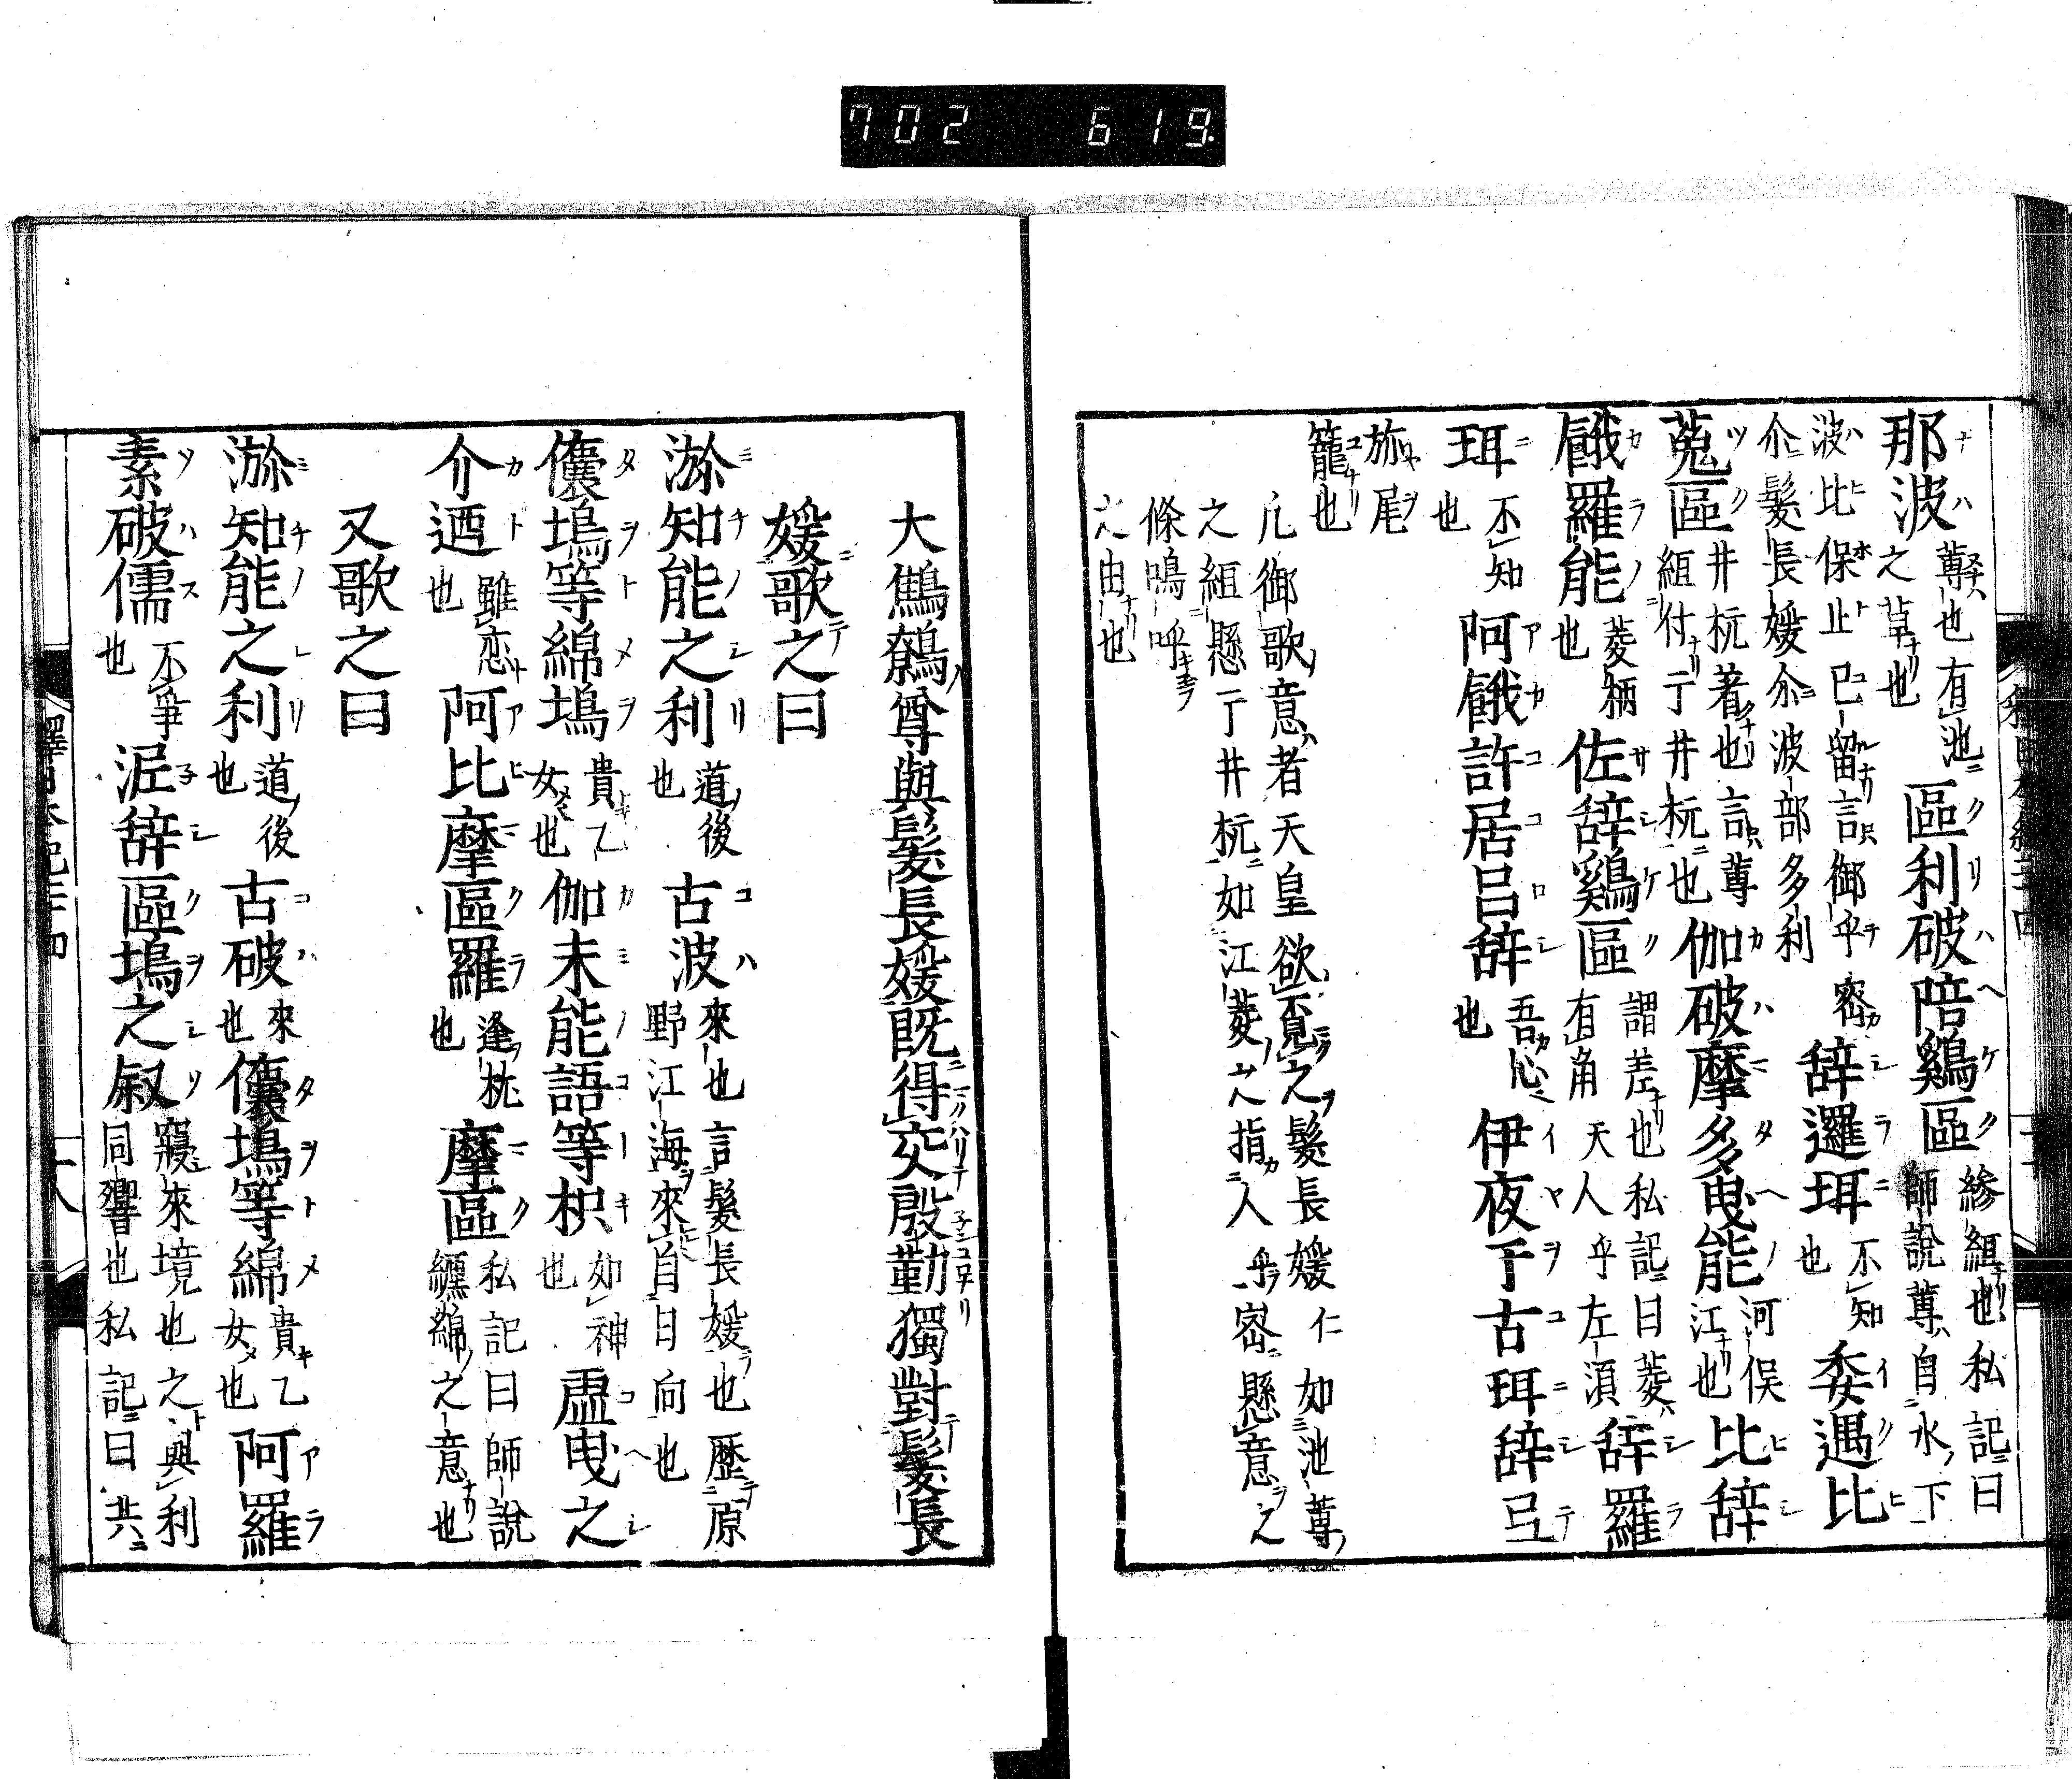 702 619.
那波蓴也有池之草也區利破陪鷄區縿組也私記曰師說蓴自水下
波比保止已留言御乎密辭邏珥不知也委遇比
尒髮長媛尒波部多利
菟區井杭著也言蓴組付于井杭也伽破摩多曳能河俣江也比辭
餓羅能菱柄也佐辭鷄區謂差也私記曰菱有角天人乎左湏辭羅
珥不知也阿餓許居呂辭吾心也伊夜于古珥辭弖
旅尾
籠也
凢御歌意者天皇欲覓之髮長媛仁如池蓴
之組懸于井杭如江菱之指人乎密懸意之
條嗚呼
之由也
大鷦鷯尊與髮長媛既得交殷勤獨對髮長
媛歌之曰
瀰知能之利道後也古波來也言髮長媛也歷原野江海來自日向也
儾塢等綿塢貴乙女也伽未能語等枳如神也虛曳之
介迺雖恋也阿比摩區羅逢枕也摩區私記曰師說纏綿之意也
又歌之曰
瀰知能之利道後也古破來也儾塢等綿貴乙女也阿羅
素破儒不爭也泥辭區塢之叙寢來境也之與利同響也私記曰共